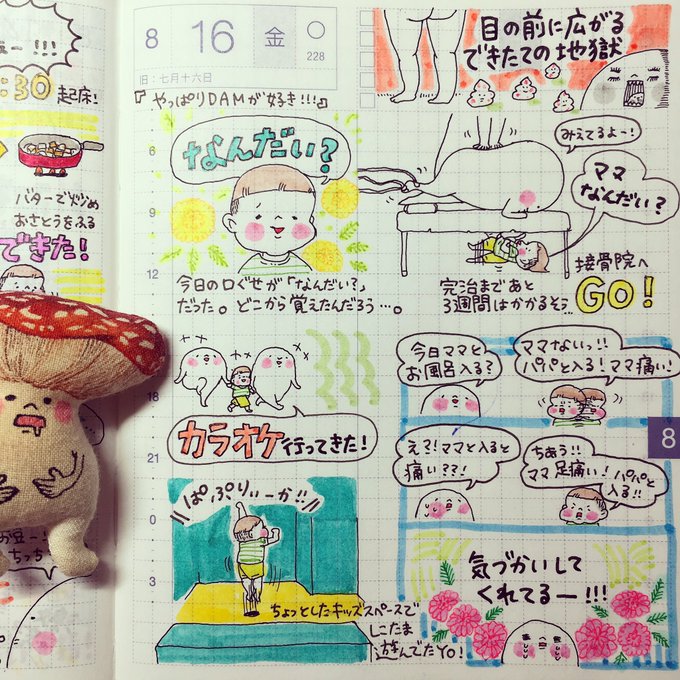 豆ー!!!
:30 起床!
バターで炒め
おさとうをふる
できた!
お豆ー!!
ちっち
8 16 金
228
旧:七月十六日
『やっぱりDAMが好き!!!』
6
9
12
18
21
0
3
なんだい?
今日の口ぐせが「なんだい?」
だった。どこから覚えたんだろう…。
カラオケ行ってきた!
ぱぷりぃーか!!
ちょっとしたキッズスペースで
しこたま
遊んでたYO!
目の前に広がる
できたての地獄
みえてるよー!
ママ
なんだい?
接骨院へ
GO!
完治まであと
3週間はかかるそう…
今日ママと
お風呂入る?
ママないっ!!
パパと入る!ママ痛い!
え?!ママと入ると
痛い??!
ちあう!!
ママ足痛い!パパと
入る!!
8
気づかいして
くれてるー!!!